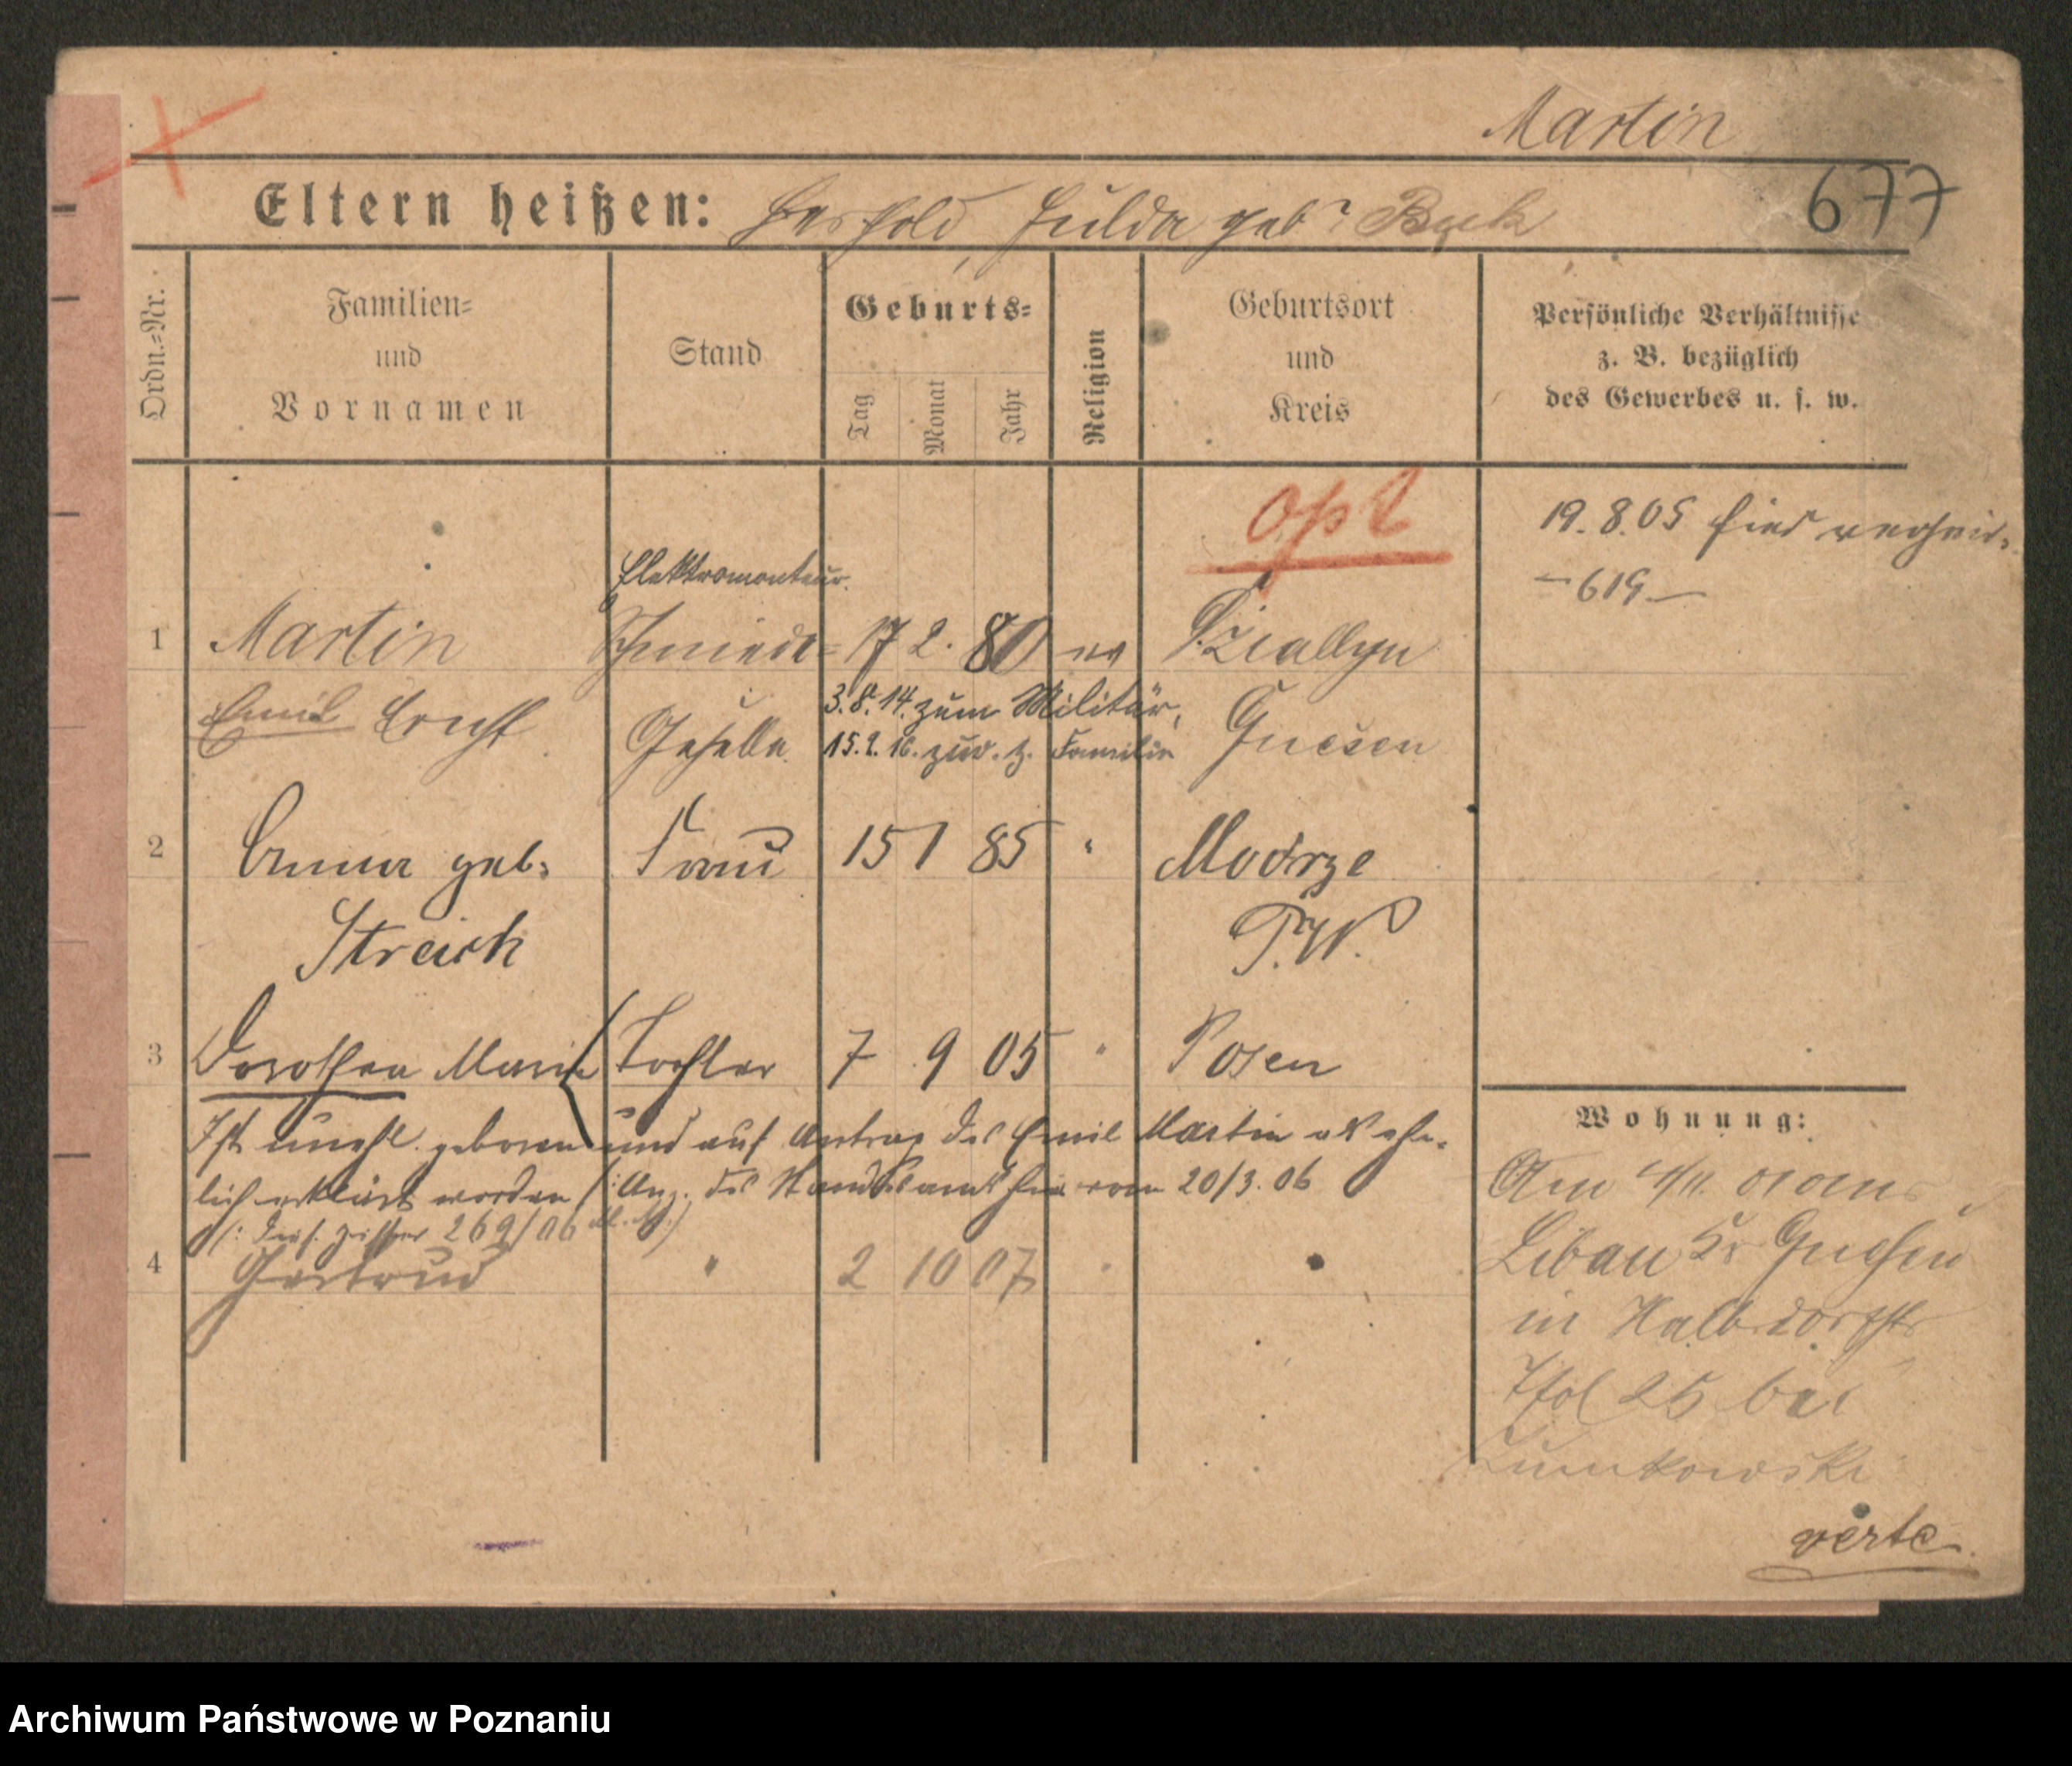 Martin
677
Eltern heißen: Berthold, Hulda geb. Buk
Ordn.=Nr.
Familien=
und
Vornamen
Stand
Geburts=
Tag
Monat
Jahr
Religion
Geburtsort
und
Kreis
Persönliche Verhältnisse
z. B. bezüglich
des Gewerbes u. s. w.
opt
19.8.05 hier verheir.
— 619 —
Elektromonteur.
1 Martin Schmiede= 17 2. 80 ev
Emil Ernst Geselle. Gnesen
3.8.14. zum Militär,
15.2.16. zur. z. Familie
2 Anna geb. Frau 15 1 85 " Modrze
Streich P.W.
3 Dorothea Marie Tochter 7 9 05 " Posen
Ist unehl. geboren und auf Antrag des Emil Martin als ehe=
lich erklärt worden /: Anz. des Standesamts hier vom 20/3.06
269/06
4 Gertrud " 2 10 07 " "
Wohnung:
Am 4/11. 01 aus
Libau Kr Gnesen
in Halbdorfstr
25 bei
verte.
Archiwum Państwowe w Poznaniu